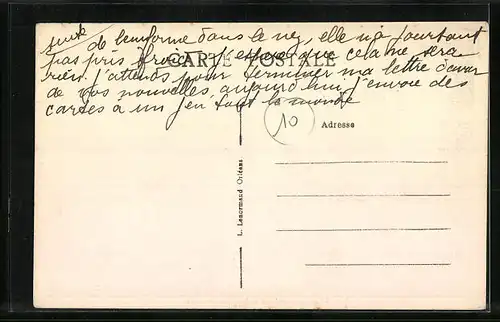 suite de l'enforme dans le nez, elle n'a pourtant
pas pris froid j'espère que cela ne sera
CARTE POSTALE
rien. j'attends pour terminer ma lettre d'avoir
de vos nouvelles, aujourd'hui j'envoie des
cartes à un peu tout le monde
10
Adresse
L. Lenormand Orléans